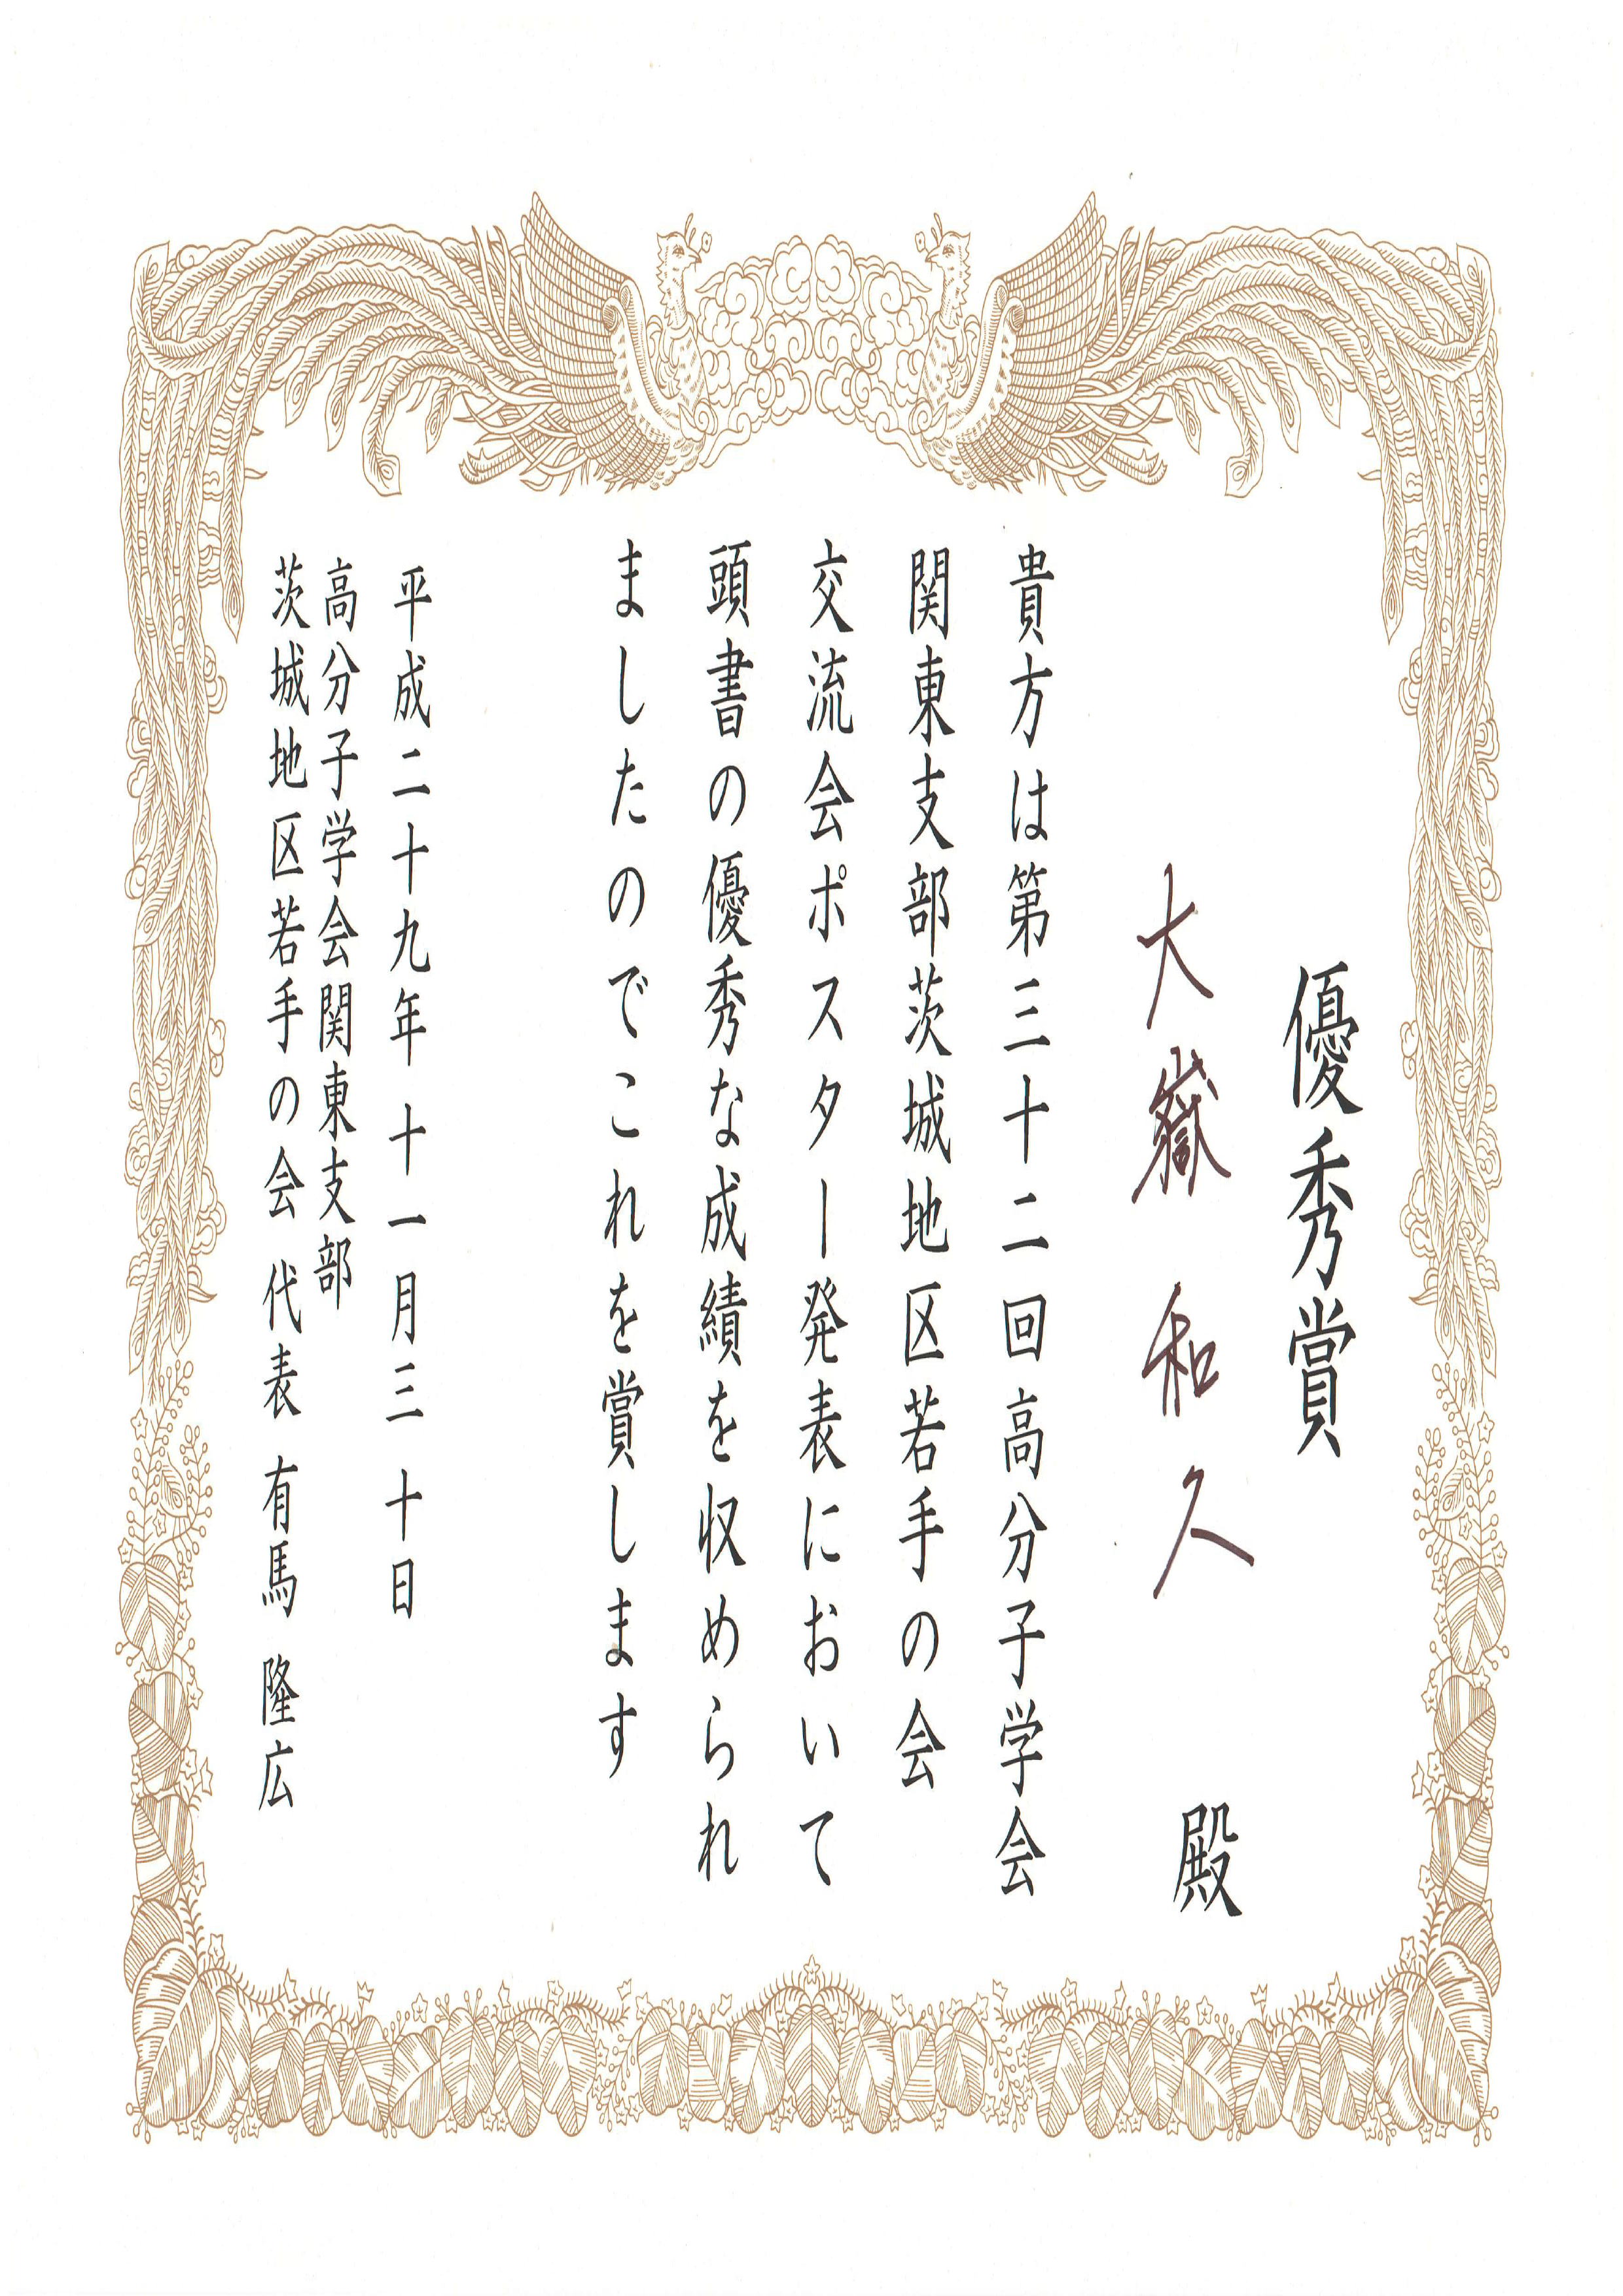 優秀賞
大嶽 和久 殿
貴方は第三十二回高分子学会
関東支部茨城地区若手の会
交流会ポスター発表において
頭書の優秀な成績を収められ
ましたのでこれを賞します
平成二十九年十一月三十日
高分子学会関東支部
茨城地区若手の会 代表 有馬 隆広